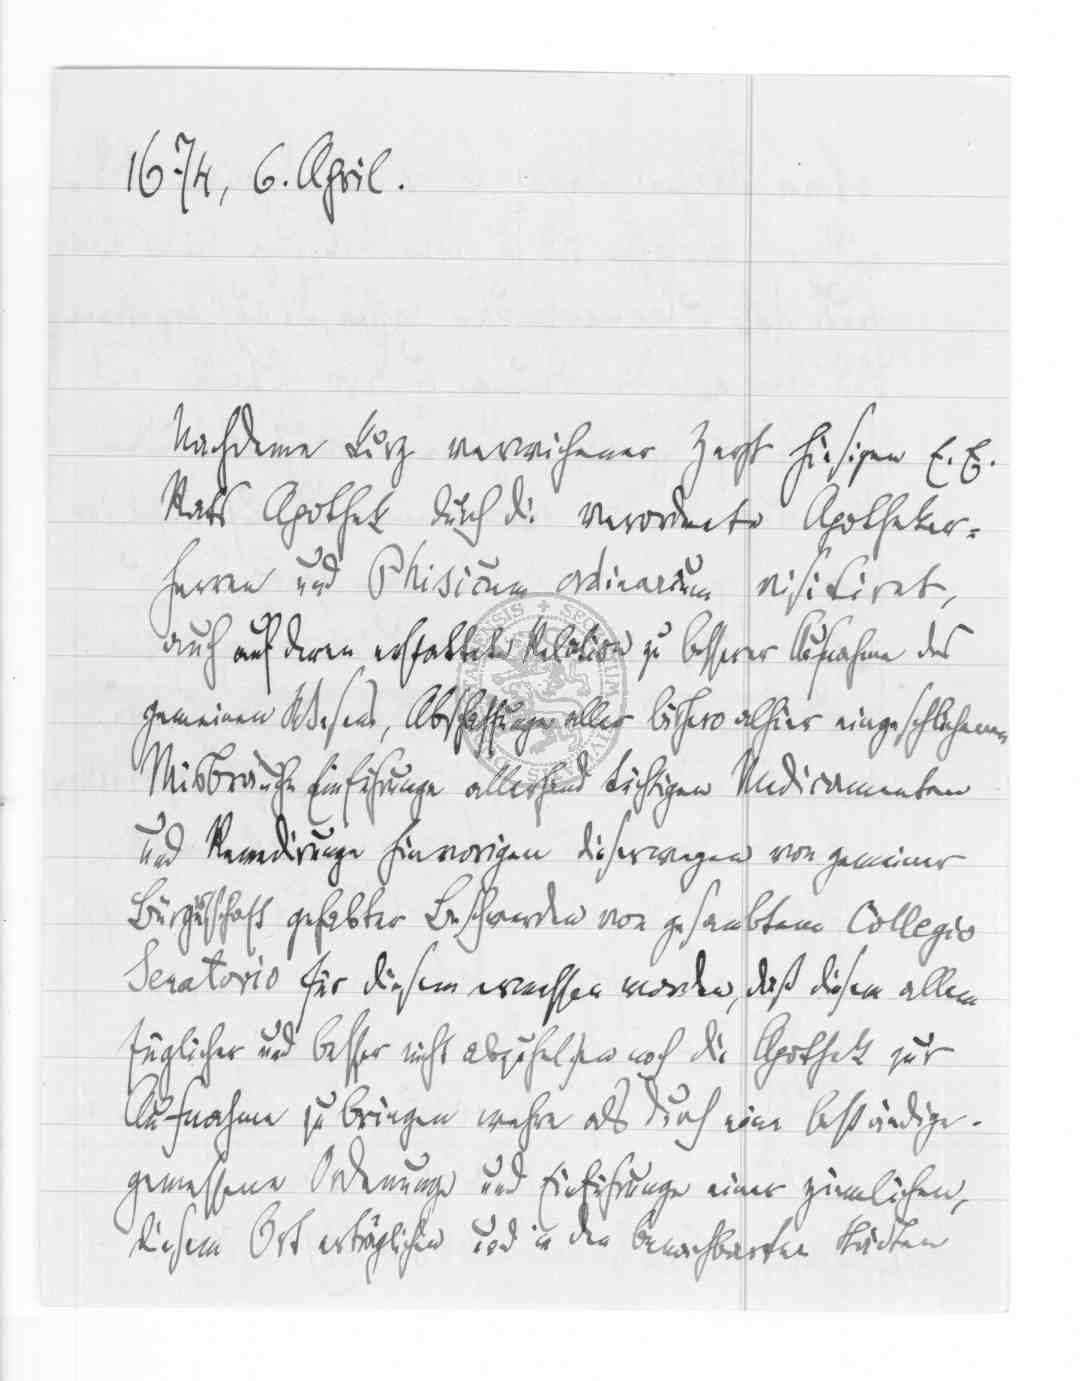 1674, 6. April.
Nachdeme kurz verwichener Zeyt hiesigen E. E.
Rats Apothek durch die verordnete Apotheker-
herren und Phisicum ordinarium visitiret,
auch auf deren erstattete Relation zu besserer Aufnahme des
gemeinen Wesens, Abschaffunge aller bishero alhier eingeschlichenen
Misbräuche Einführunge allerhand tüchtigen Medicamenten
und Remedirunge hievorigen dieserwegen von gemeiner
Bürgerschaft gehabter Beschwerden von gesambtem Collegio
Senatorio für diesem ermessen worden, daß diesem allem
füglicher und besser nicht abzuhelfen noch die Apothek zur
Aufnahme zu bringen wehre als durch eine beständige
gemessene Ordenunge und Einführunge einer ziemlichen,
diesem Ort erträglichen und in den benachbarten Städten